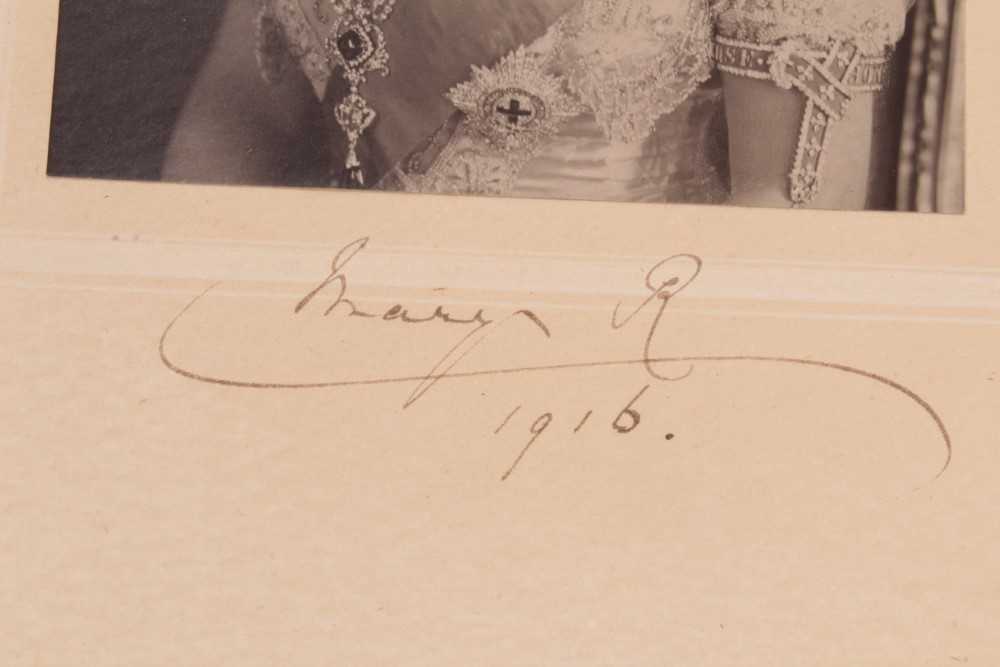 Mary R
1916.